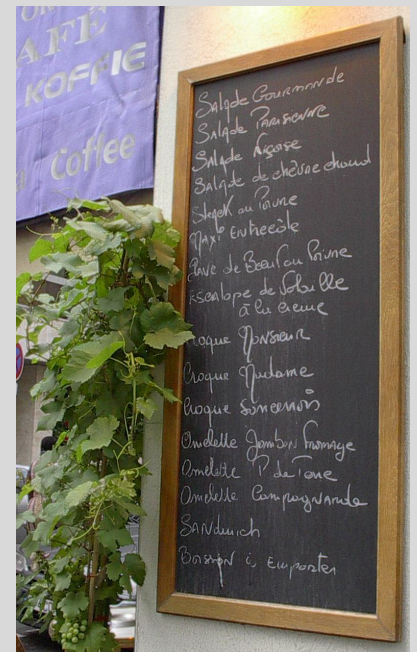 CAFÉ
KOFFIE
Coffee
Salade Gourmande
Salade Parisienne
Salade Niçoise
Salade de chèvre chaud
Steak au Poivre
Maxi Entrecôte
Pavé de Boeuf au Poivre
Escalope de Volaille
à la Creme
Croque Monsieur
Croque Madame
Croque
Omelette Jambon Fromage
Omelette P. de Terre
Omelette Campagnarde
Sandwich
Boisson à Emporter